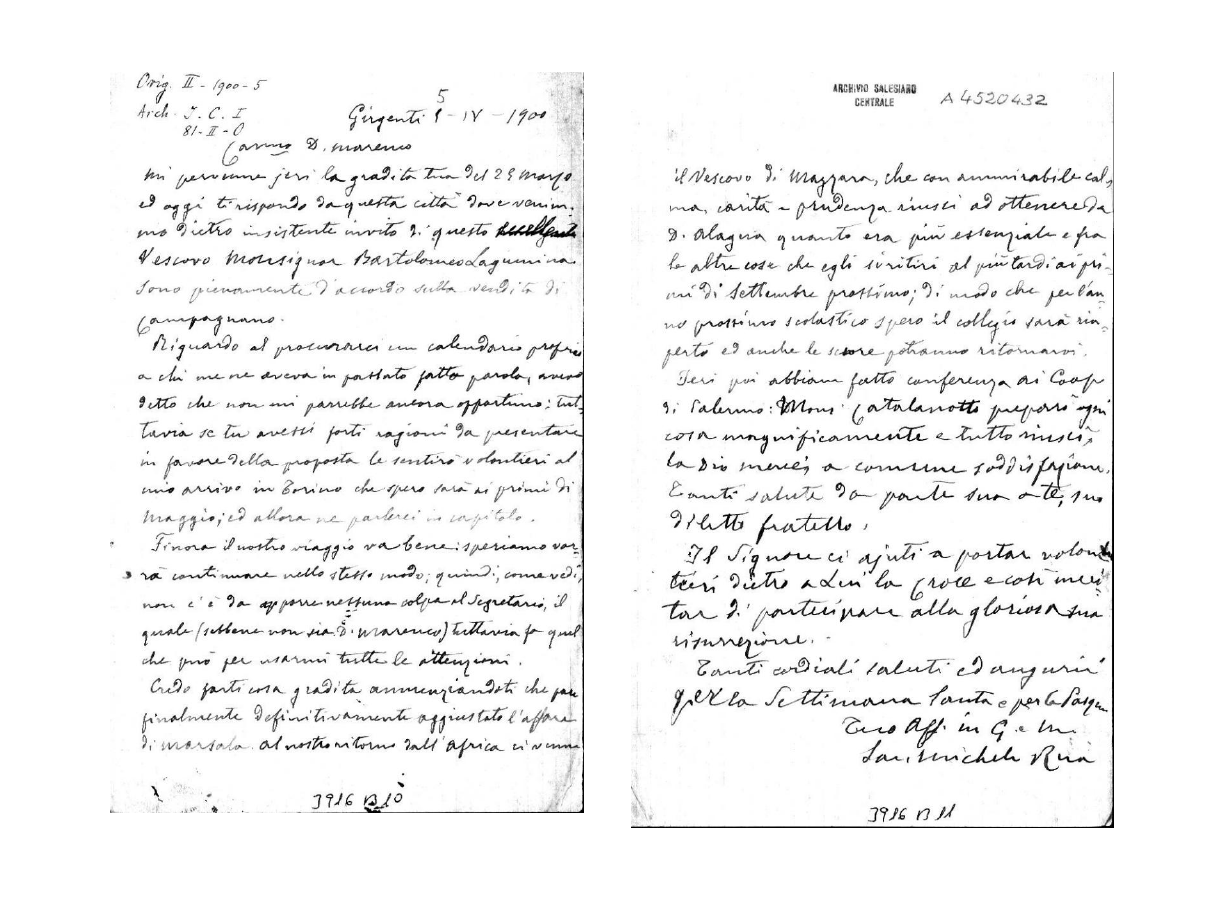 Orig. II - 1900 - 5
Arch. J. C. I
81 - II - 0
5
Girgenti - IV - 1900
Carmo D. Marenco
Mi pervenne jeri la gradita tua del 29 marzo
ed oggi ti rispondo da questa città dove venim-
mo dietro insistente invito di questo
Vescovo Monsignor Bartolomeo Lagumina
Sono pienamente d'accordo sulla vendita di
Campagnano.
Riguardo al procurarci un calendario proprio
a chi me ne aveva in passato fatto parola, aveva
detto che non mi parrebbe ancora opportuno; tut-
tavia se tu avessi forti ragioni da presentare
in favore della proposta le sentirò volontieri al
mio arrivo in Torino che spero sarà ai primi di
Maggio; ed allora ne parlerei in capitolo.
Finora il nostro viaggio va bene: speriamo vor-
rà continuare nello stesso modo; quindi, come vedi,
non c'è da apporre nessuna colpa al Segretario, il
quale (sebbene non sia D. Marenco) tuttavia fa quel
che può per usarmi tutte le attenzioni.
Credo farti cosa gradita annunziandoti che pare
finalmente definitivamente aggiustato l'affare
di Marsala. Al nostro ritorno dall'Africa ci venne
3916 B 10
ARCHIVIO SALESIANO
CENTRALE
A 4520432
il Vescovo di Mazzara, che con ammirabile cal-
ma, carità e prudenza riuscì ad ottenere da
D. Alagna quanto era più essenziale e fra
le altre cose che egli si ritiri al più tardi ai pri-
mi di Settembre prossimo; di modo che per l'an-
no prossimo scolastico spero il collegio sarà ria-
perto ed anche le suore potranno ritornarvi.
Ieri poi abbiam fatto conferenza ai Coop
di Salerno: Mons. Catalanotto preparò ogni
cosa magnificamente e tutto riuscì,
la Dio mercè, a comune soddisfazione.
Tanti salute da parte sua a te, suo
diletto fratello.
Il Signore ci ajuti a portar volon-
tieri dietro a Lui la Croce e così meri-
tar di partecipare alla gloriosa sua
risurrezione.
Tanti cordiali saluti ed augurii
per la Settimana Santa e per la Pasqua
Tuo Aff. in G. e M.
Sac. Michele Rua
3916 B 11